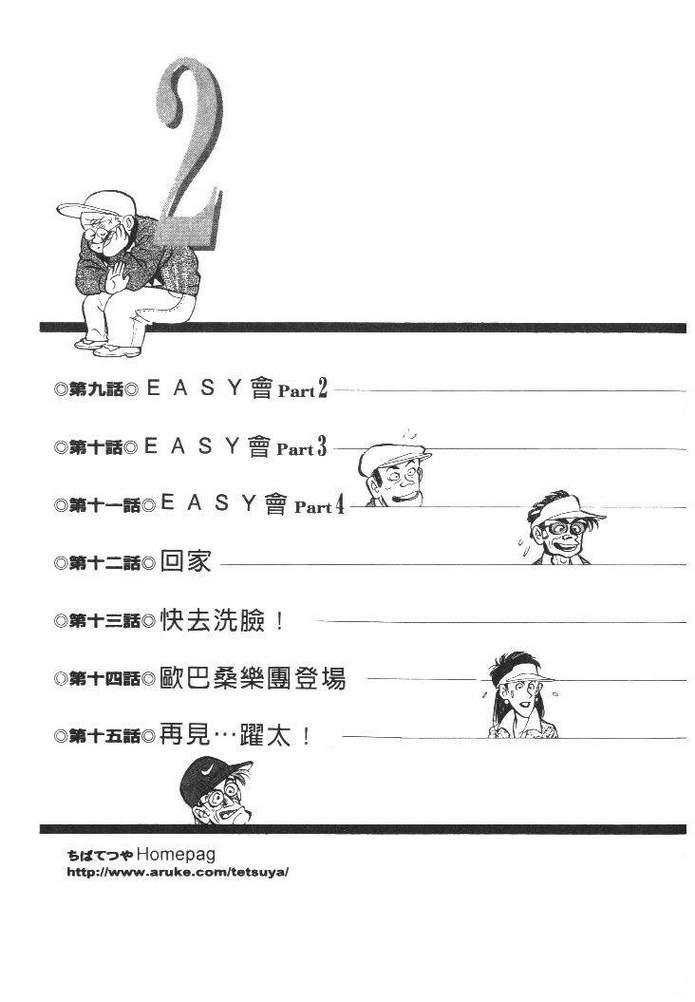 2
◎第九話◎ＥＡＳＹ會 Part 2
◎第十話◎ＥＡＳＹ會 Part 3
◎第十一話◎ＥＡＳＹ會 Part 4
◎第十二話◎回家
◎第十三話◎快去洗臉！
◎第十四話◎歐巴桑樂團登場
◎第十五話◎再見…躍太！
ちばてつや Homepag
http://www.aruke.com/tetsuya/